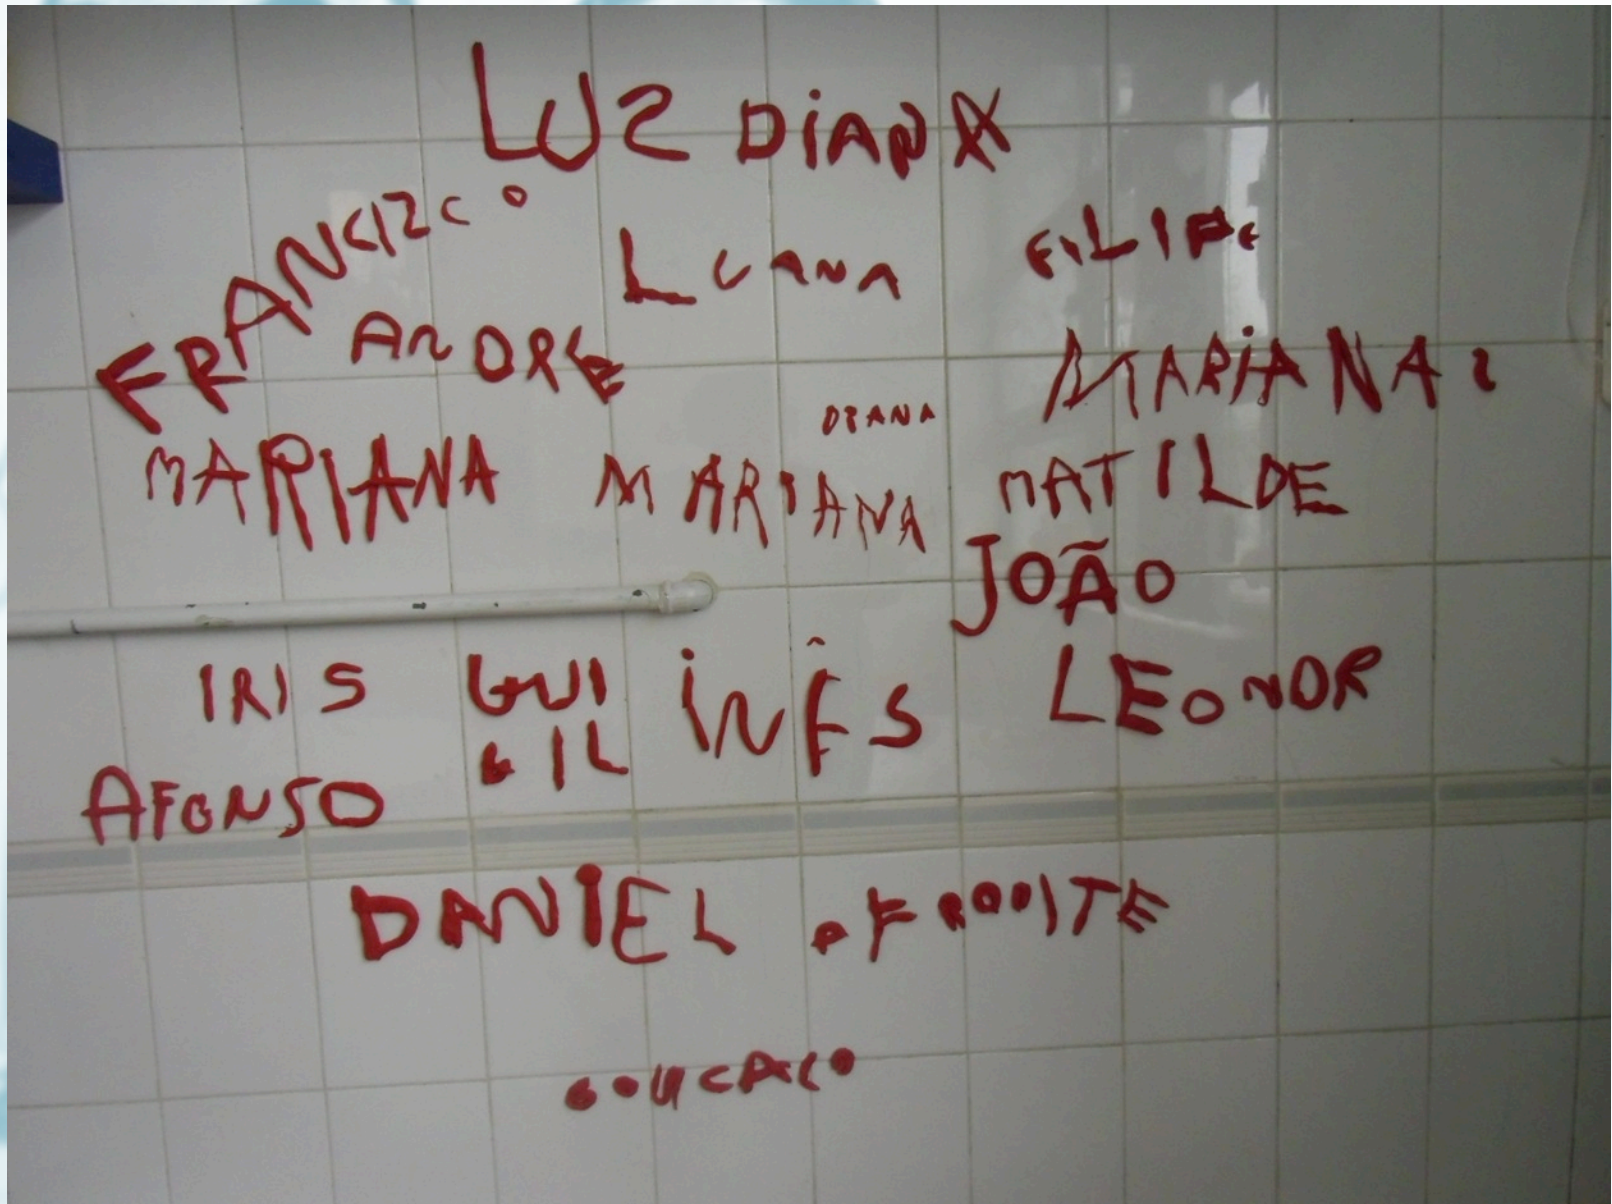 LUZ DIANA
FRANCIZCO
LUANA
FILIPE
ANDRE
MARIANA 2
DIANA
MARIANA MARIANA MATILDE
JOÃO
IRIS GUI INÊS LEONOR
GIL
AFONSO
DANIEL AFRODITE